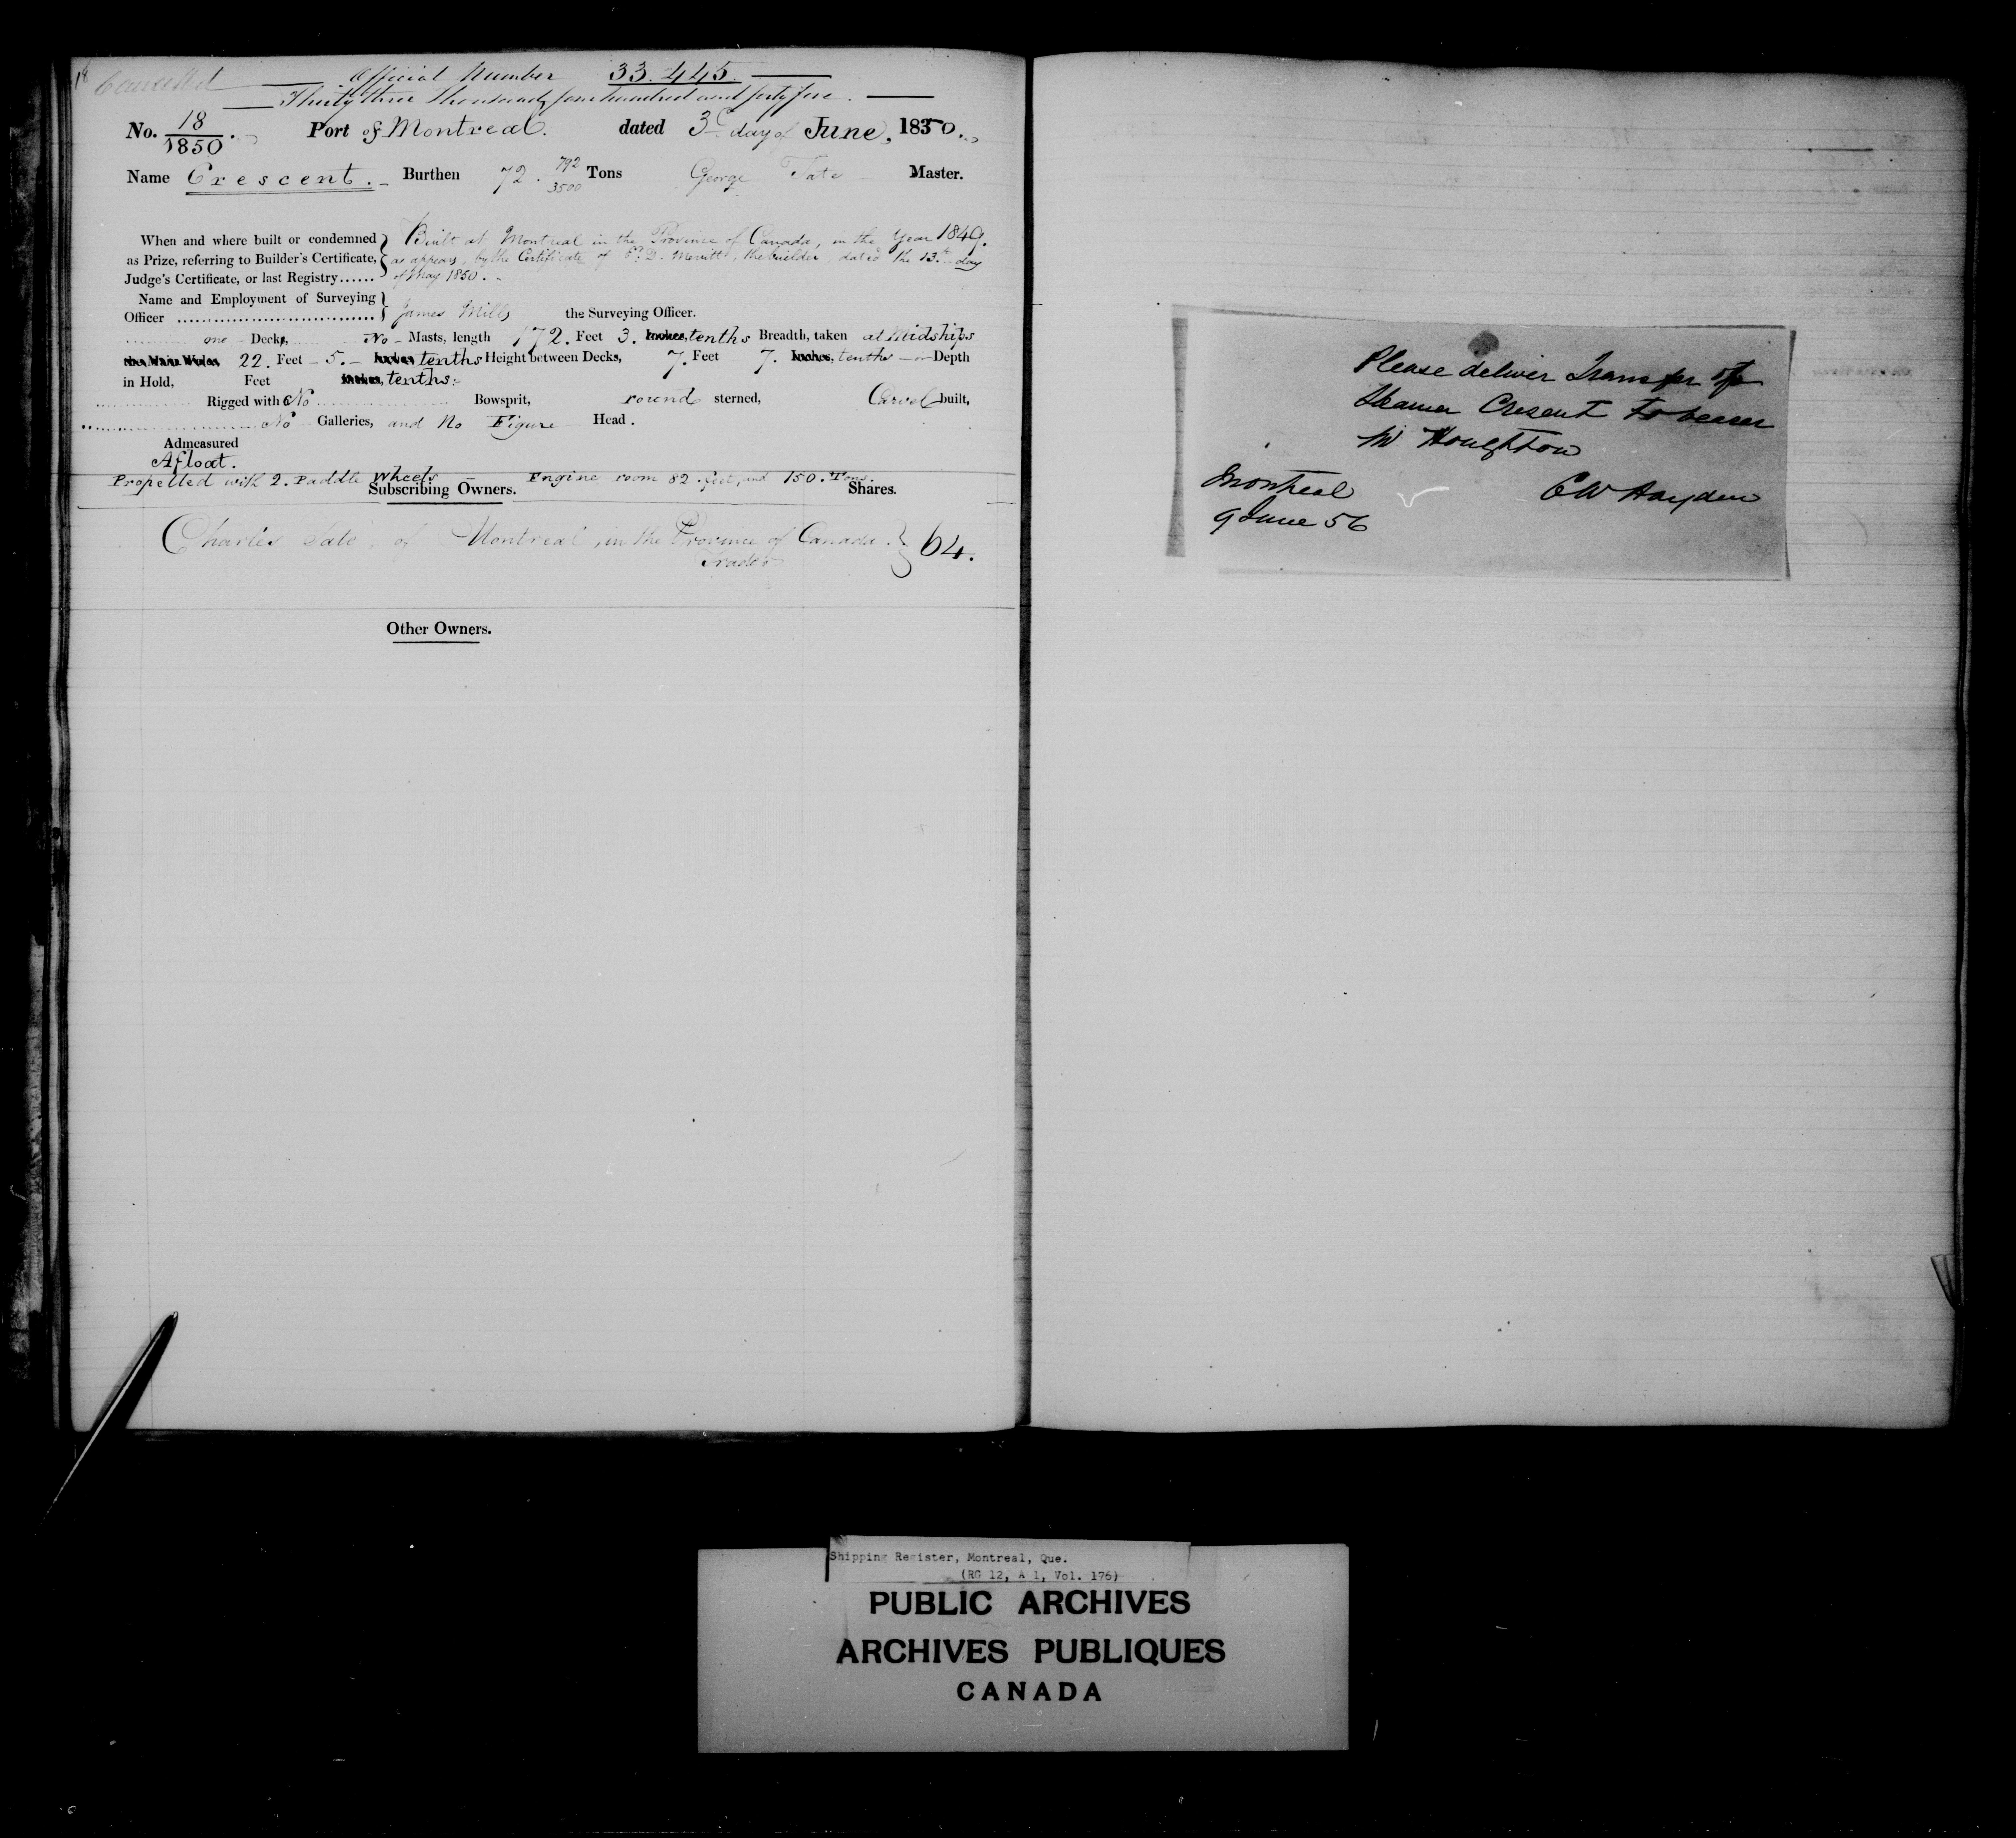 18 Cancelled
Official Number 33.445.
Thirty three thousand, four hundred and forty five.
No. 18/1850. Port of Montreal. dated 3d day of June, 1850.
Name Crescent. Burthen 72. 792/3500 Tons George Tate Master.
When and where built or condemned as Prize, referring to Builder's Certificate, Judge's Certificate, or last Registry...... } Built at Montreal in the Province of Canada, in the Year 1849.
as appears, by the Certificate of E. D. Merritt, the builder, dated the 13th day
of May 1850.
Name and Employment of Surveying
Officer } James Mills the Surveying Officer.
one Deck, No Masts, length 172. Feet 3. Inches, tenths Breadth, taken at Midships
22. Feet 5. Inches tenths Height between Decks, 7. Feet 7. Inches, tenths or Depth
in Hold, Feet Inches, tenths:
Rigged with No Bowsprit, round sterned, Carvel built,
No Galleries, and No Figure Head.
Admeasured
Afloat.
Propelled with 2. Paddle Wheels Engine room 82. feet, and 150. Tons.
Subscribing Owners. Shares.
Charles Tate of Montreal, in the Province of Canada. } 64.
Trader
Other Owners.
Please deliver Transfer of
Steamer Cresent to bearer
Mr Houghton
Montreal C W Hayden
9 June 56
Shipping Register, Montreal, Que.
(RG 12, A 1, Vol. 176)
PUBLIC ARCHIVES
ARCHIVES PUBLIQUES
CANADA